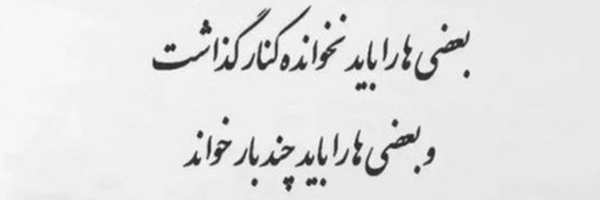 بعضی ها را باید نخوانده کنار گذاشت
و بعضی ها را باید چند بار خواند